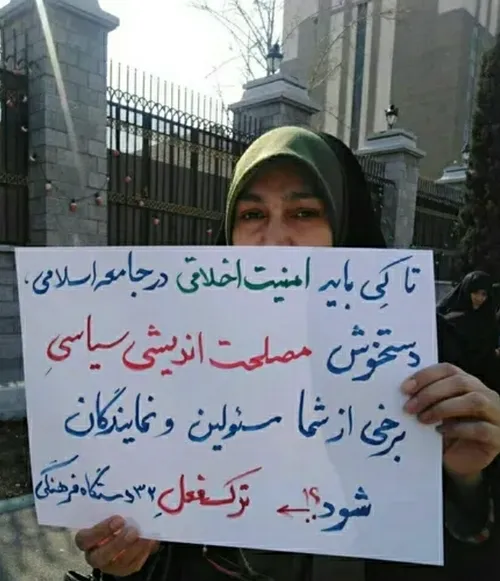 تا کِی باید امنیت اخلاقی در جامعه اسلامی،
دستخوش مصلحت اندیشی سیاسیِ
برخی از شما مسئولین و نمایندگان
شود؟!! ← ترک فعلِ ۳۲ دستگاه فرهنگی